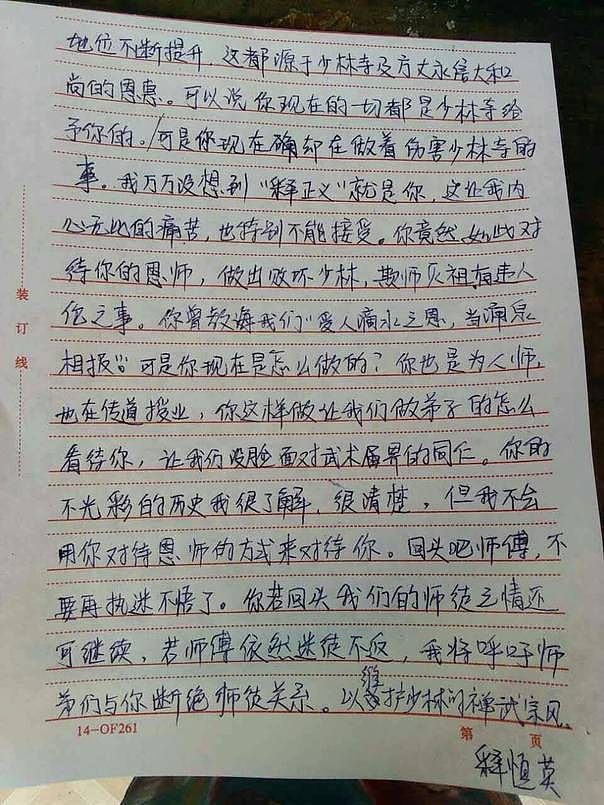 地位不断提升，这都源于少林寺及方丈永信大和
尚的恩惠。可以说你现在的一切都是少林寺给
予你的。可是你现在确却在做着伤害少林寺的
事。我万万没想到“释正义”就是你，这让我内
心无比的痛苦，也特别不能接受。你竟然如此对
待你的恩师，做出败坏少林，欺师灭祖有违人
伦之事。你曾教诲我们“受人滴水之恩，当涌泉
相报”。可是你现在是怎么做的？你也是为人师，
也在传道授业，你这样做让我们做弟子的怎么
看待你，让我们没脸面对武术届界的同仁。你的
不光彩的历史我很了解，很清楚，但我不会
用你对待恩师的方式来对待你。回头吧师傅，不
要再执迷不悟了。你若回头我们的师徒之情还
可继续，若师傅依然迷徒不返，我将呼吁师
弟们与你断绝师徒关系。以维护少林的禅武宗风。
装
订
线
14-OF261
第 页
释恒英